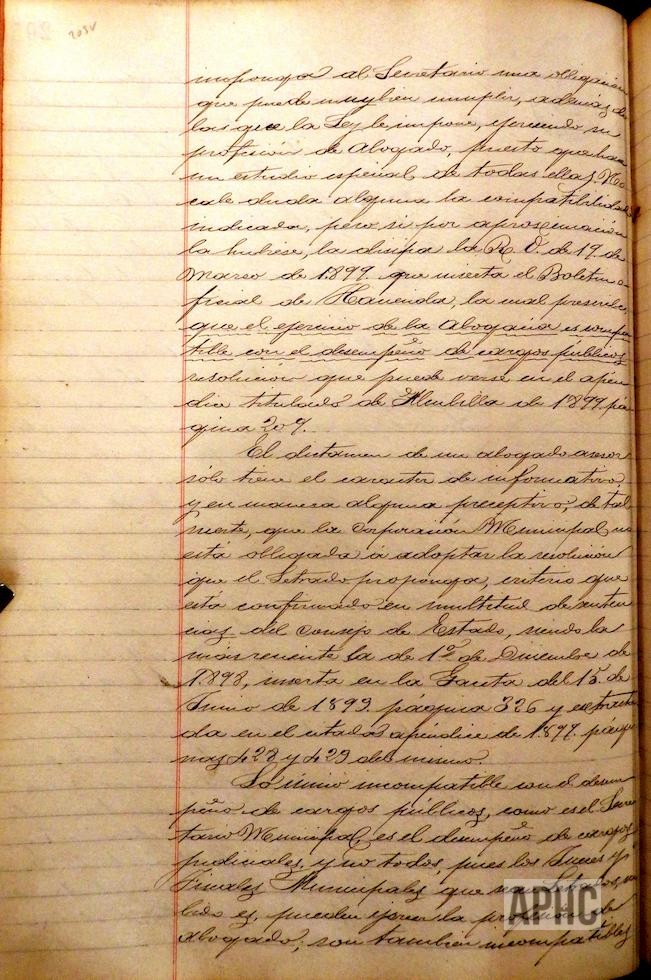 203v
imponga al Secretario una obligación
que puede muy bien cumplir, además de
las que la Ley le impone, ejerciendo su
profesión de Abogado, puesto que hace
un estudio especial de todas ellas. No
cabe duda alguna la compatibilidad
indicada, pero si por aproximación
la hubiese, la disipa la R. O. de 19 de
Marzo de 1.899 que inserta el Boletin o-
ficial de Hacienda, la cual prescribe,
que el ejercicio de la Abogacia es compa
tible con el desempeño de cargos públicos,
resolución que puede verse en el apén
dice titulado de Alcubilla de 1.899 pá
gina 209.
El dictamen de un abogado asesor
sólo tiene el caracter de informativo,
y en manera alguna preceptivo, de tal
suerte, que la Corporación Municipal no
está obligada á adoptar la resolución
que el Letrado proponga, criterio que
está confirmado en multitud de senten
cias del Consejo de Estado, siendo la
más reciente la de 1º de Diciembre de
1.898, inserta en la Gaceta del 15 de
Junio de 1899 página 326 y extracta
da en el citado apéndice de 1.899 pági
nas 428 y 429 del mismo.
Lo único incompatible con el desem
peño de cargos públicos, como es el Secre
tario Municipal, es el desempeño de cargos
judiciales, y no todos, pues los Jueces y
Fiscales Municipales que sean Letrados, sa
bido es, pueden ejercer la profesión de
Abogado; son también incompatibles
APHC